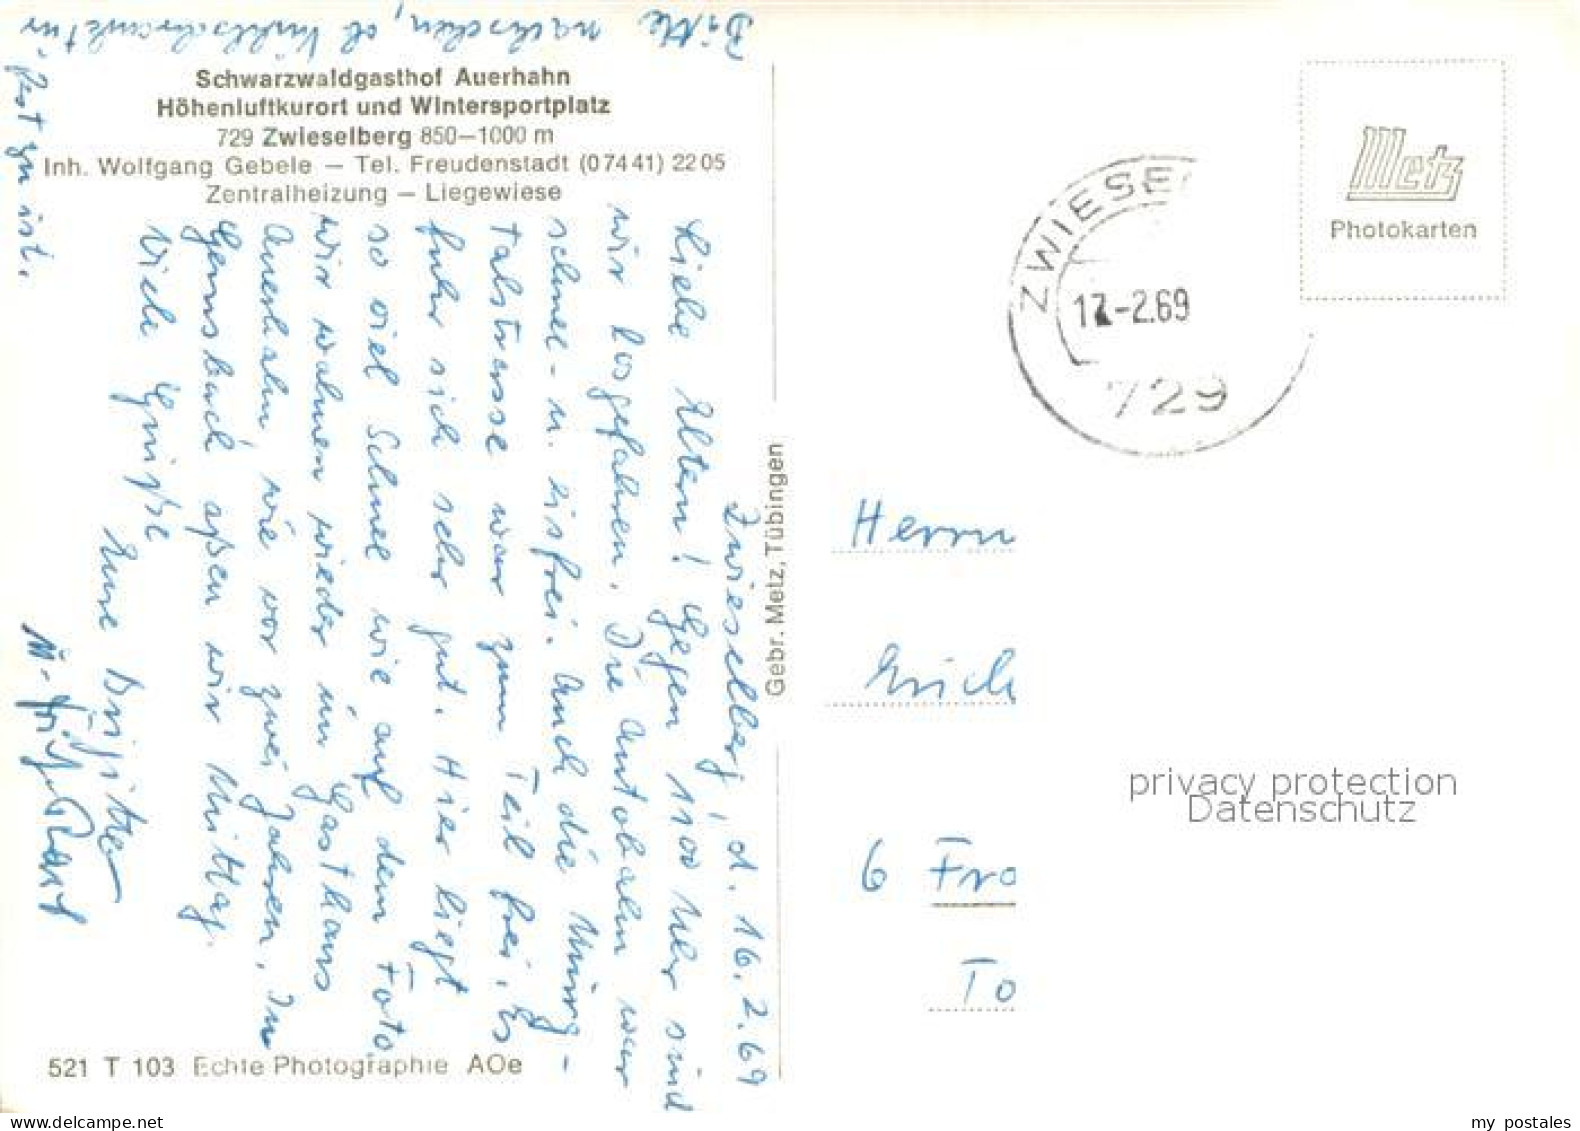 Bitte nachsehen, ob Kühlschranktür
fest zu ist.
Schwarzwaldgasthof Auerhahn
Höhenluftkurort und Wintersportplatz
729 Zwieselberg 850–1000 m
Inh. Wolfgang Gebele – Tel. Freudenstadt (07441) 2205
Zentralheizung – Liegewiese
Zwieselberg, d. 16.2.69
Liebe Eltern! Gegen 11⁰⁰ Uhr sind
wir losgefahren. Die Autobahn war
schnee- u. eisfrei. Auch die Murg-
talstrasse war zum Teil frei. Es
fuhr sich sehr gut. Hier liegt
so viel Schnee wie auf dem Foto
wir wohnen wieder im Gasthaus
Auerhahn, wie vor zwei Jahren. In
Gernsbach aßen wir Mittag.
Viele Grüße
Eure Brigitte
u.
521 T 103 Echte Photographie AOe
Gebr. Metz, Tübingen
Metz
Photokarten
ZWIESE
17.-2.69
729
Herrn
Erich
6 Fra
To
privacy protection
Datenschutz
my postales